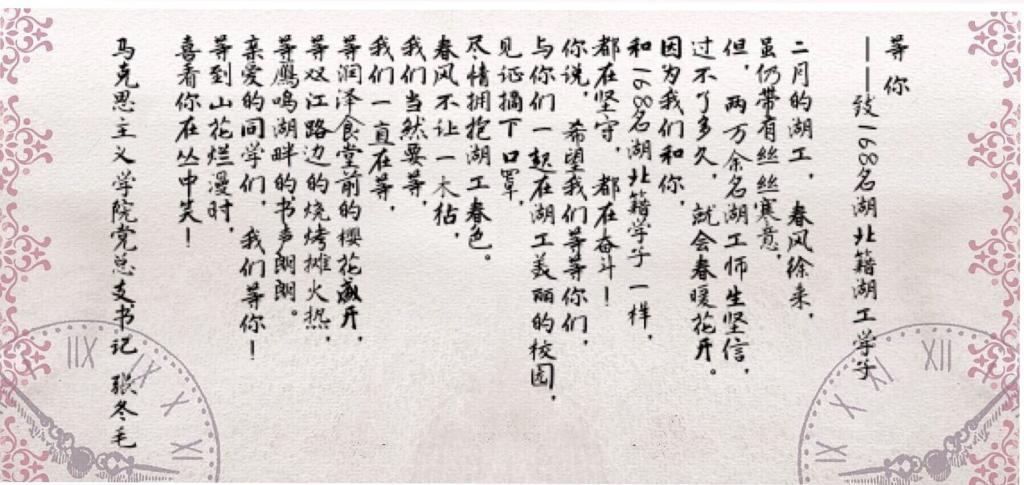 等你
——致168名湖北籍湖工学子
二月的湖工，春风徐来，
虽仍带有丝丝寒意，
但，两万余名湖工师生坚信，
过不了多久，就会春暖花开。
因为我们和你，
和168名湖北籍学子一样，
都在坚守，都在奋斗！
你说，希望我们等等你们，
与你们一起在湖工美丽的校园，
见证摘下口罩，
尽情拥抱湖工春色。
春风不让一木枯，
我们当然要等，
我们一直在等，
等润泽食堂前的樱花盛开，
等双江路边的烧烤摊火热，
等鹰鸣湖畔的书声朗朗。
亲爱的同学们，我们等你！
等到山花烂漫时，
喜看你在丛中笑！
马克思主义学院党总支书记 张冬毛
XII
XI
X
IX
XII
XI
X
IX